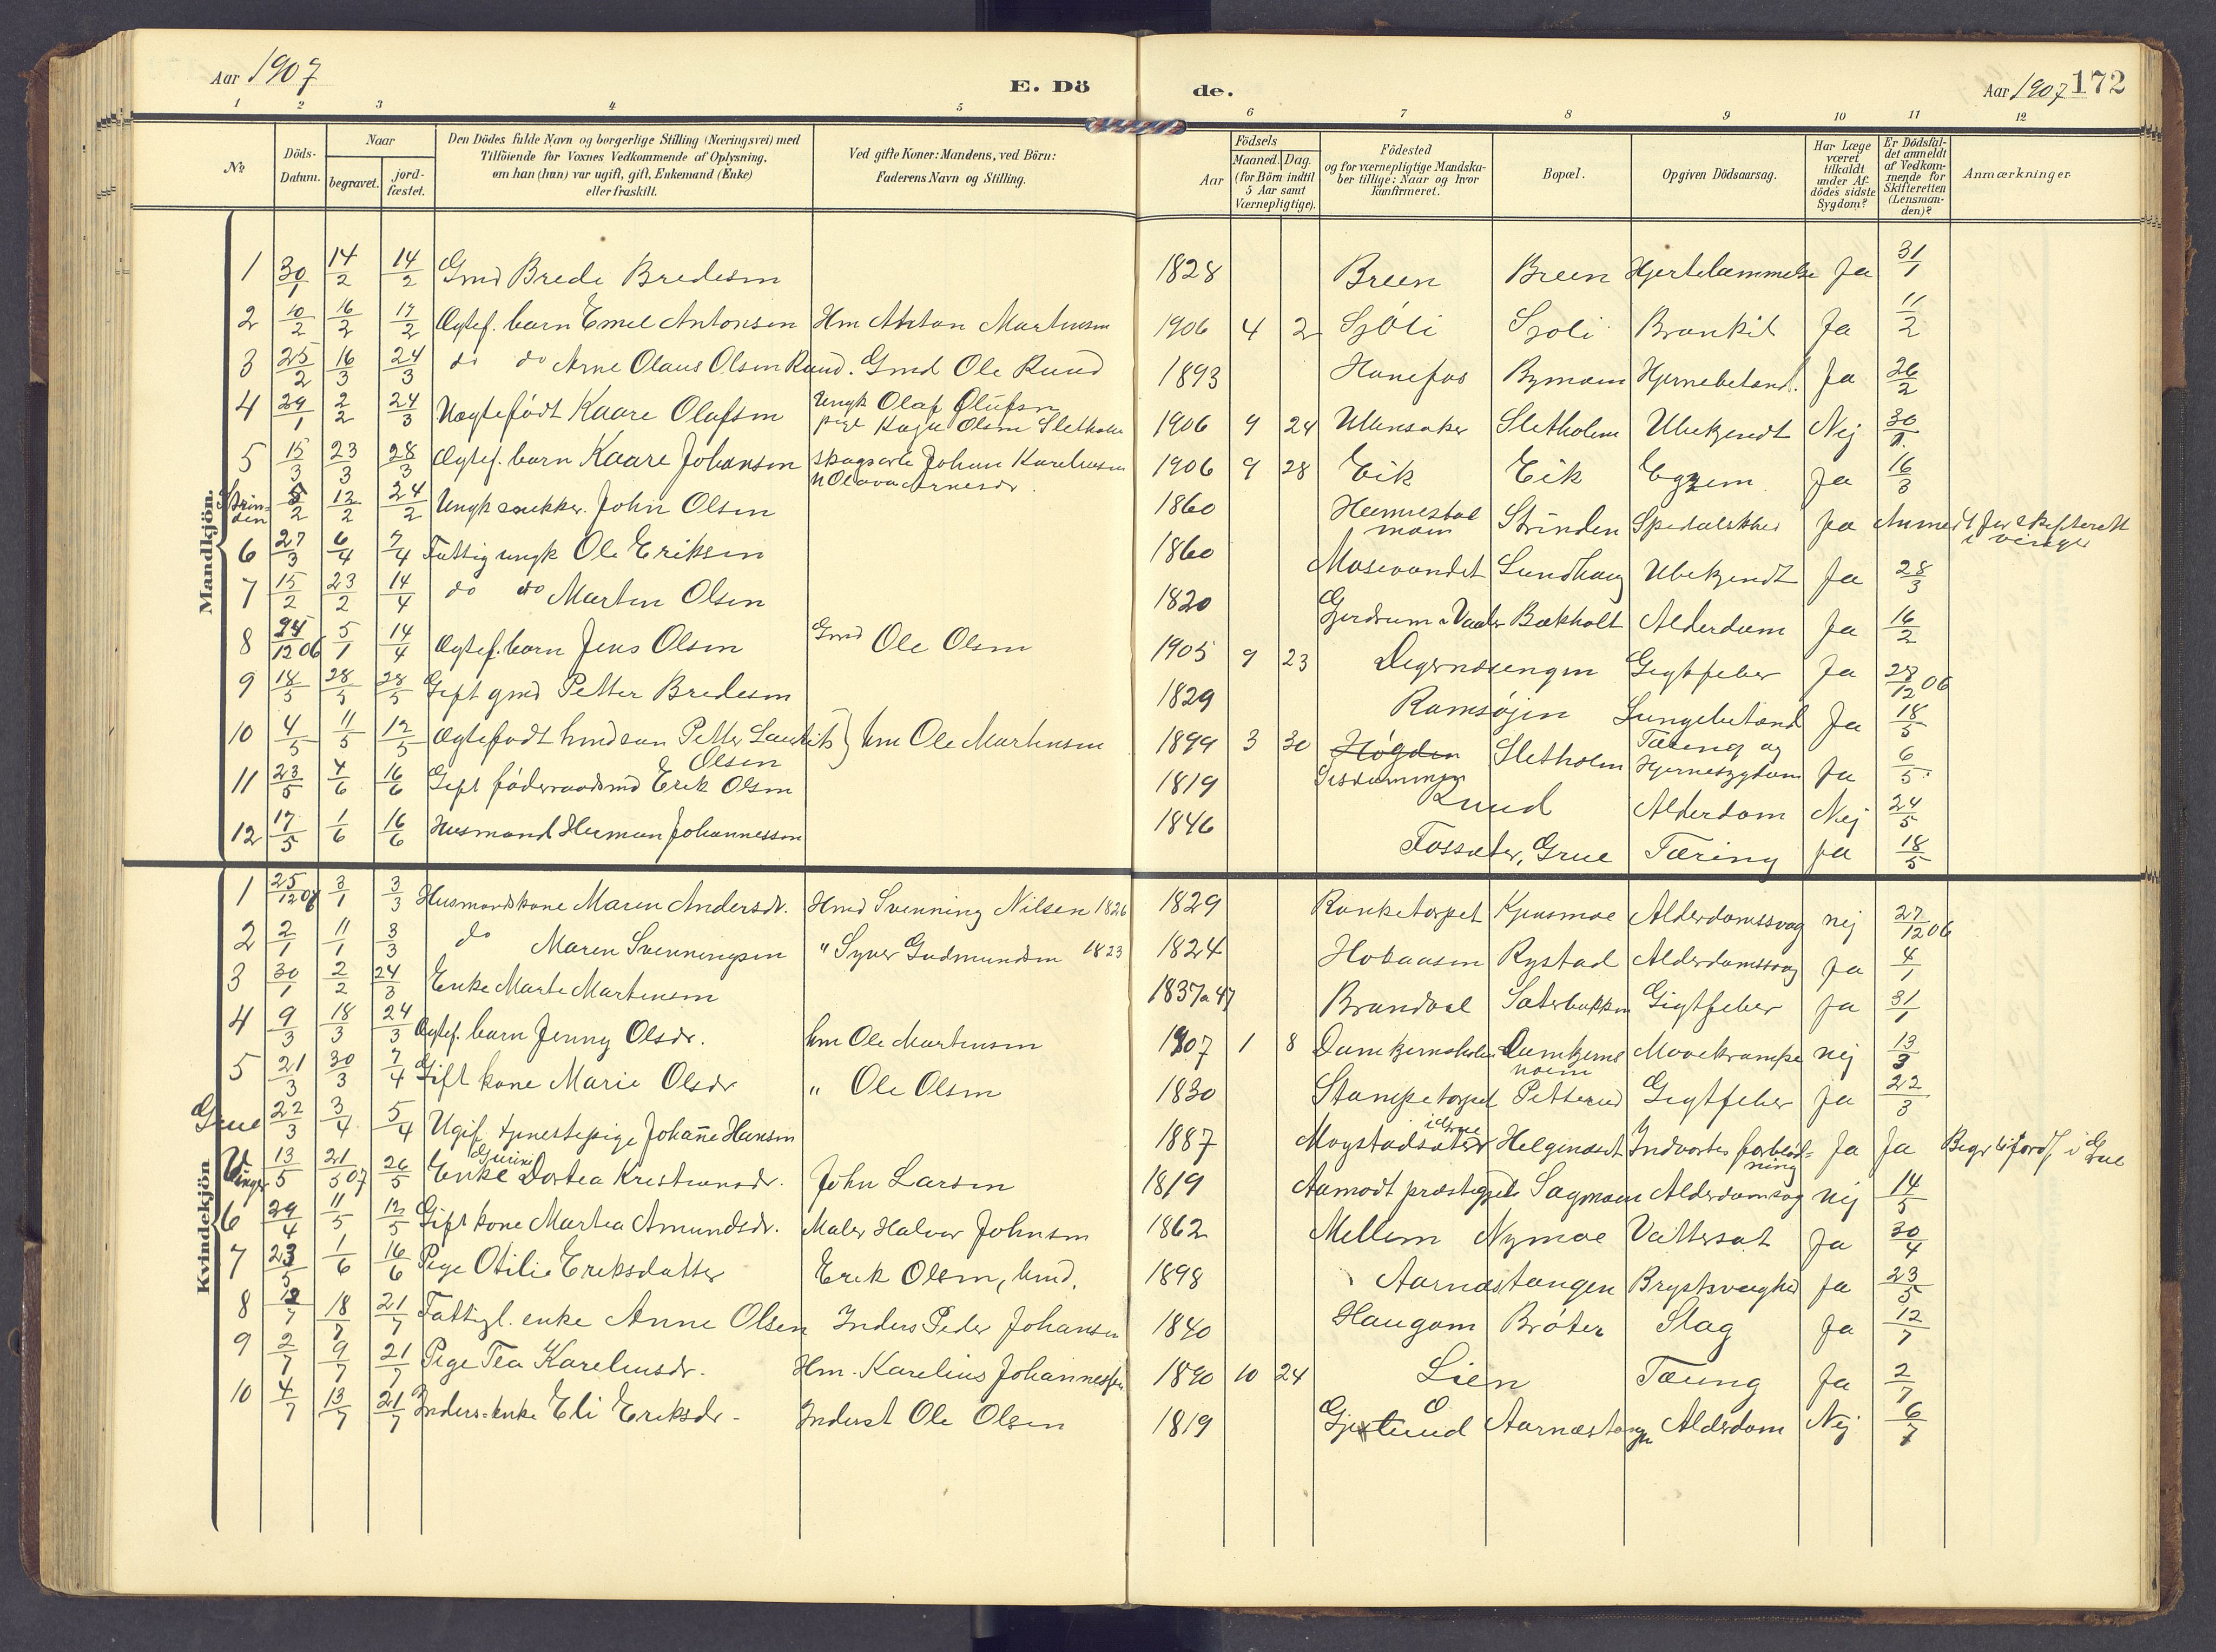 Aar 1907
E. Dö
de.
Aar 1907 172
1 2 3 4 5 6 7 8 9 10 11 12
No
Döds-
Datum.
Naar
begravet.
jord-
fæstet.
Den Dödes fulde Navn og borgerlige Stilling (Næringsvei) med
Tilföiende for Voxnes Vedkommende af Oplysning,
om han (hun) var ugift, gift, Enkemand (Enke)
eller fraskilt.
Ved gifte Koner: Mandens, ved Börn:
Faderens Navn og Stilling.
Födsels
Aar
Maaned. Dag.
(for Börn indtil
5 Aar samt
Værnepligtige).
Födested
og for værnepligtige Mandska-
ber tillige: Naar og hvor
kanfirmeret.
Bopæl.
Opgiven Dödsaarsag.
Har Læge
været
tilkaldt
under Af-
dödes sidste
Sygdom?
Er Dödsfal-
det anmeldt
af Vedkom-
mende for
Skifteretten
(Lensman-
den)?
Anmærkninger
Mandkjön.
1 30/1 14/2 14/2 Gmd Brede Bredesen 1828 Breen Breen Hjertelammelse Ja 31/1
2 10/2 16/2 17/2 Ægtef. barn Emil Antonsen Hm Anton Martinsen 1906 4 2 Sjøli Sjøli Bronkit Ja 11/2
3 25/2 16/3 24/3 do do Arne Olaus Olsen Ruud. Gmd Ole Ruud 1893 Hanefos Bymoen Hjernebetænd. Ja 26/2
4 29/1 2/2 24/3 Uægtefödt Kaare Olafsen Ungk Olaf Olufsen
pige Kaja Olsen Sletholen 1906 9 24 Ullensaker Sletholen Ubekjendt Nej 30/1
5 15/3 23/3 28/3 Ægtef. barn Kaare Johansen Skogsarb Johan Kareliusen
Olava Arnesdr. 1906 9 28 Eik Eik Egzem Ja 16/3
Strin-
den 5/2 12/2 24/2 Ungk snekker. John Olsen 1860 Strinden Spedalskhed Ja Anmeldt for skifterett
i Vinger
6 27/3 6/4 7/4 Fattig ungk Ole Eriksen 1860 Mosevandet Lundhaug Ubekjendt Ja 28/3
7 15/2 23/2 14/4 do do Martin Olsen 1820 Gjerdrum Vaaler Bækholt Alderdom Ja 16/2
8 24/12 06 5/1 14/4 Ægtef. barn Jens Olsen Gmd Ole Olsen 1905 9 23 Digernæsengen Gigtfeber Ja 28/12 06
9 18/5 28/5 28/5 Gift gmd Petter Bredesen 1829 Ramsøjen Lungebetænd Ja 18/5
10 4/5 11/5 12/5 Ægtefødt hmdsøn Petter Laurits
Olsen } hm Ole Martinsen 1899 3 30 Høgden Sletholen Tæring og
Hjernesygdom Ja 6/5
11 23/5 4/6 16/6 Gift föderaadsmd Erik Olsen 1819 Ruud Alderdom Nej 24/5
12 17/5 1/6 16/6 Husmand Herman Johannessen 1846 Fossæter, Grue Tæring Ja 18/5
Kvindekjön
1 25/12 06 3/1 3/3 Husmandskone Maren Andersdr. Hmd Svenning Nilsen 1826 1829 Ranketorpet Kjensmoe Alderdomssvag nej 27/12 06
2 2/1 11/1 3/3 do Maren Svenningsen " Syver Gudmundsen 1823 1824 Hobaasen Rystad Alderdomssvag Ja 4/1
3 30/1 2/2 24/3 Enke Marte Martinsen 1837 a 47 Brandval Sæterbakken Gigtfeber Ja 31/1
4 9/3 18/3 24/3 Ægtef. barn Jenny Olsdr. hm Ole Martinsen 1907 1 8 Damtjernsholen Damtjerns
moen Mavekrampe nej 13/3
5 21/3 30/3 7/4 Gift kone Marie Olsdr " Ole Olsen 1830 Stampetorpet Petterud Gigtfeber Ja 22/3
Grue 22/3 3/4 5/4 Ugif. tjenestepige Johanne Hansen 1887 Moystadsæter
i Grue Helginæset Indvortes forblöd-
ning Ja Ja Begr & jordf i Grue
Vinger 13/5 21/5 07 26/5 Enke Gurine Dortea Kristiansdr. John Larsen 1819 Aamodt præstegjeld Sagmoen Alderdomssvag nej 14/5
6 29/4 11/5 12/5 Gift kone Martea Amundsdr. Maler Halvor Johnsen 1862 Mellem Nymoe Vattersot Ja 30/4
7 23/5 1/6 16/6 Pige Otilie Eriksdatter Erik Olsen, hmd. 1898 Aarnæstangen Brystsvaghed Ja 23/5
8 12/7 18/7 21/7 Fattigl. enke Anne Olsen Inders Peder Johansen 1840 Haugom Bröter Slag Ja 12/7
9 2/7 9/7 21/7 Pige Tea Kareliusdr. Hm. Karelius Johannessen 1890 10 24 Lien Tæring Ja 2/7
10 4/7 13/7 21/7 Inders-enke Eli Eriksdr - Inderst Ole Olsen 1819 Aarnæstangen Alderdom Nej 6/7